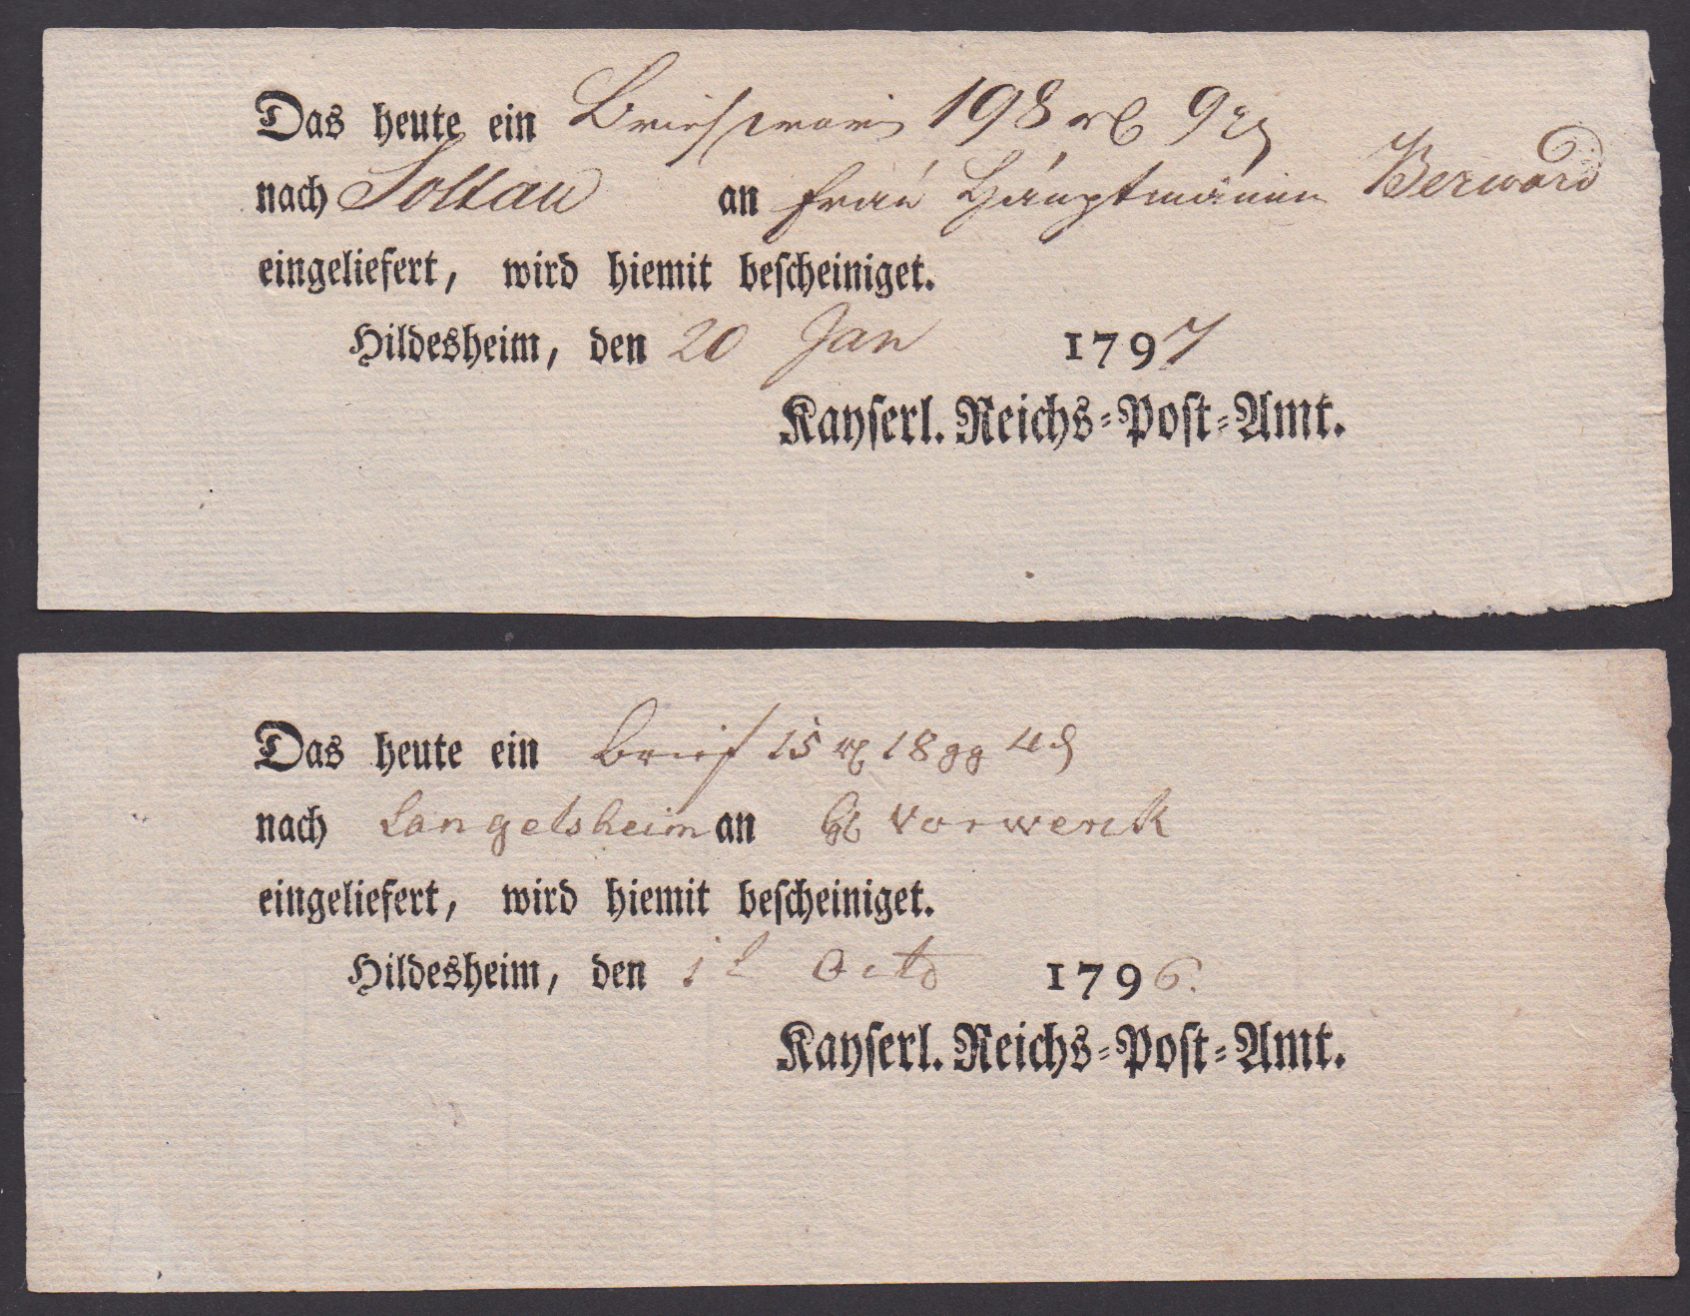 Das heute ein Brief 198 rl 9
nach Soltau an Frau Hauptmanin Berward
eingeliefert, wird hiemit beſcheiniget.
Hildesheim, den 20 Jan 1797
Kayſerl. Reichs-Poſt-Amt.
Das heute ein Brief 15 rl 18 gg 4 d
nach Langelsheim an Vorwerck
eingeliefert, wird hiemit beſcheiniget.
Hildesheim, den Octb 1796.
Kayſerl. Reichs-Poſt-Amt.